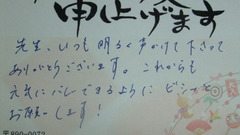 申上げます
先生、いつも明るく声かけて下さって
ありがとうございます。これからも
元気にバレーできるように ビシッと
お願いします!
〒890-0072